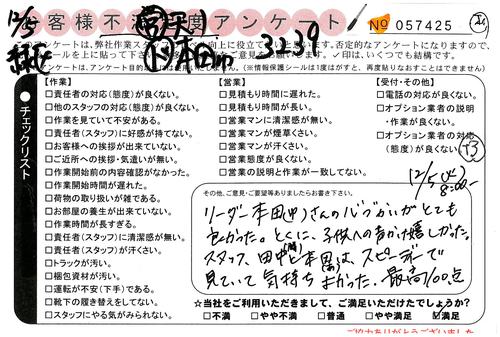 お客様不満足度アンケート
No 057425
12/5
3239
アンケートは、弊社作業スタッフ
向上に役立て
否定的なアンケートになりますので、
ールを上に貼って下さい。
✓印は、いくつでも結構です。
アンケートは、アンケート目的
(※情報保護シールは1度がはずすと、再度貼りなおすことはできません)
●チェックリスト
【作業】
□責任者の対応(態度)が良くない。
□他のスタッフの対応(態度)が良くない。
□作業を見ていて不安がある。
□責任者(スタッフ)に好感が持てない。
□お客様への挨拶が出来ていない。
□ご近所への挨拶・気遣いが無い。
□作業開始前の内容確認がなかった。
□作業開始時間が遅れた。
□荷物の取り扱いが雑である。
□お部屋の養生が出来ていない。
□作業時間が長すぎる。
□責任者(スタッフ)に清潔感が無い。
□責任者(スタッフ)が汗くさい。
□トラックが汚い。
□梱包資材が汚い。
□運転が不安(下手)である。
□靴下の履き替えをしてない。
□スタッフにやる気がみられない。
【営業】
□見積もりに遅れた。
□見積もり時間が長い。
□営業マンに清潔感が無い。
□営業マンが煙草くさい。
□営業マンが汗くさい。
□営業態度が良くない。
□営業の説明と作業が一致してない。
【受付・その他】
□電話の対応が良くない。
□オプション業者の説明
・作業が良くない。
□オプション業者の対応
(態度)が良くない。
12/5(火)
8:00~
その他、ご意見・ご要望等ありましたらお書き下さい。
リーダー本田(中)さんの心づかいがとても
良かった。とくに、子供への声かけ嬉しかった。
スタッフ、田中と本田は、スピーディーで
見ていて気持ちよかった。最高100点
☆当社をご利用いただきまして、ご満足いただけたでしょうか？
□不満 □やや不満 □普通 □やや満足 ☑満足
ご協力ありがとうございました